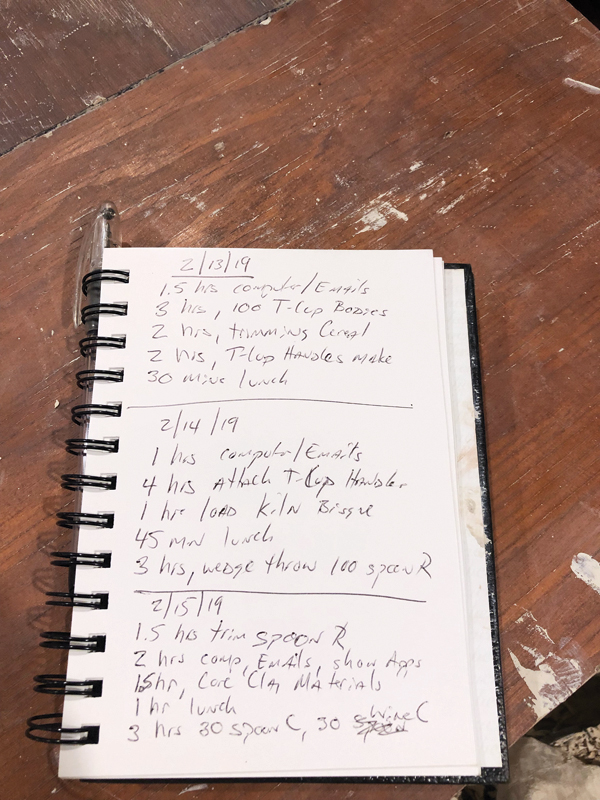 2/13/19
1.5 hrs computer/Emails
3 hrs, 100 T-Cup Bodies
2 hrs, trimming Cereal
2 hrs, T-Cup Handles make
30 mins lunch
2/14/19
1 hrs computer/Emails
4 hrs Attach T-Cup Handles
1 hr load Kiln Bisque
45 min lunch
3 hrs, wedge throw 100 spoon R
2/15/19
1.5 hrs trim SPOON R
2 hrs comp, Emails, show Apps
1.5hr, Core Clay Materials
1 hr lunch
3 hrs 30 spoon C, 30 wine C